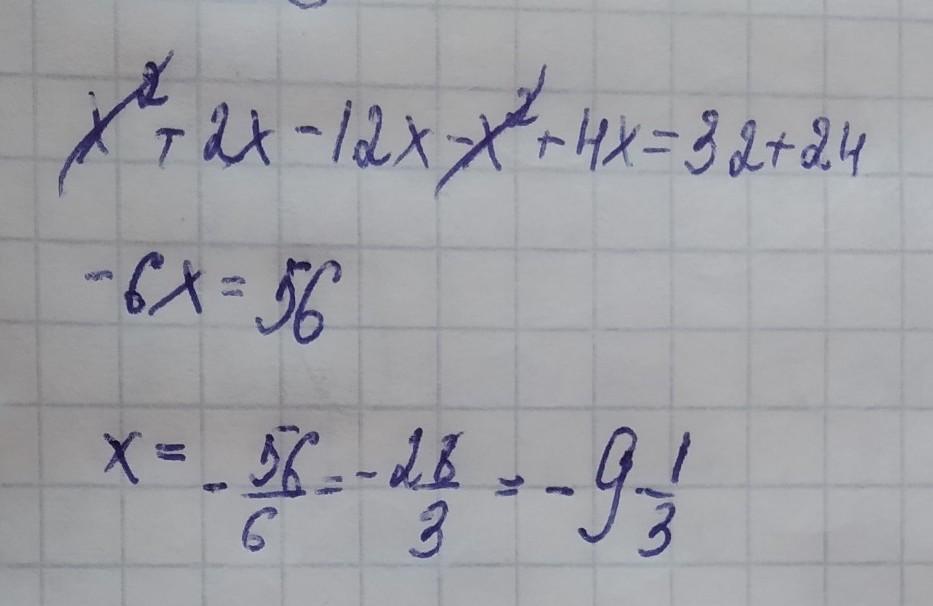 x² + 2x - 12x - x² + 4x = 32 + 24
-6x = 56
x = - 56/6 = - 28/3 = - 9 1/3